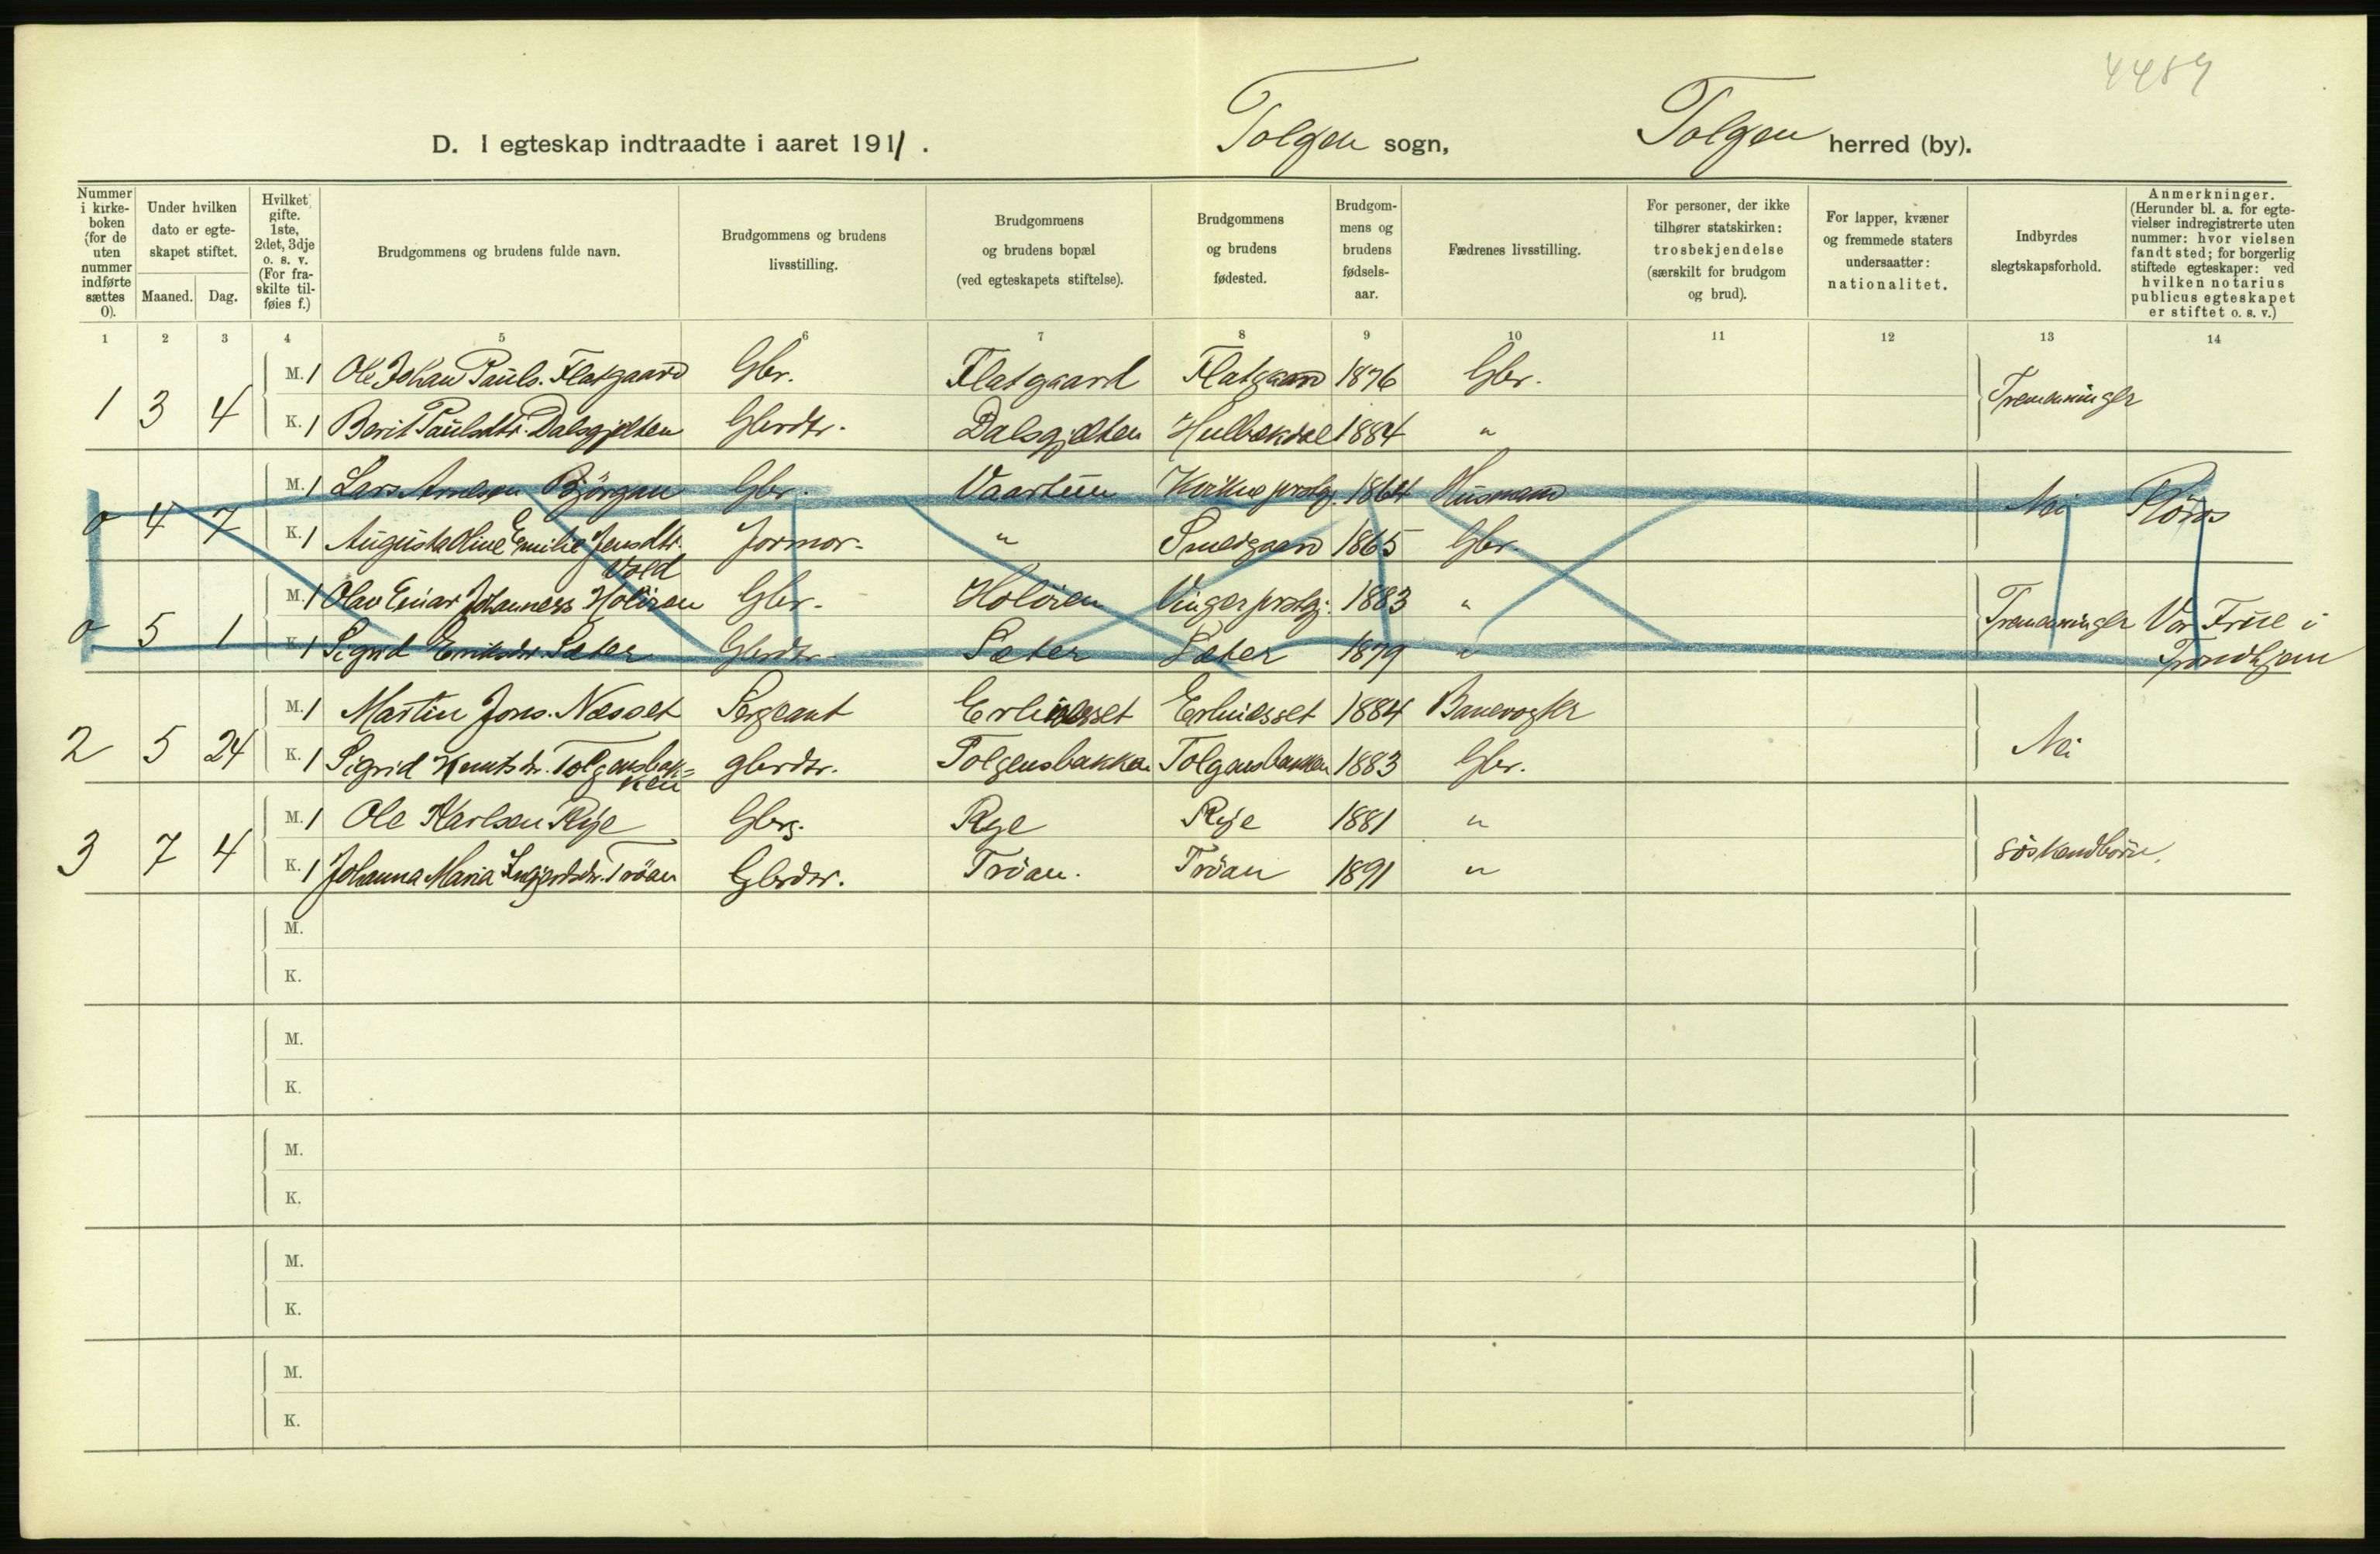 4484
D. I egteskap indtraadte i aaret 1911. Tolgen sogn, Tolgen herred (by).
Nummer i kirke- boken (for de uten nummer indførte sættes 0).
Under hvilken dato er egte- skapet stiftet.
Maaned. Dag.
Hvilket gifte. 1ste, 2det, 3dje o. s. v. (For fra- skilte til- føies f.)
Brudgommens og brudens fulde navn.
Brudgommens og brudens livsstilling.
Brudgommens og brudens bopæl (ved egteskapets stiftelse).
Brudgommens og brudens fødested.
Brudgom- mens og brudens fødsels- aar.
Fædrenes livsstilling.
For personer, der ikke tilhører statskirken: trosbekjendelse (særskilt for brudgom og brud).
For lapper, kvæner og fremmede staters undersaatter: nationalitet.
Indbyrdes slegtskapsforhold.
Anmerkninger. (Herunder bl. a. for egte- vielser indregistrerte uten nummer: hvor vielsen fandt sted; for borgerlig stiftede egteskaper: ved hvilken notarius publicus egteskapet er stiftet o. s. v.)
1 2 3 4 5 6 7 8 9 10 11 12 13 14
M. 1 Ole Johan Pauls. Flatgaard Gbr. Flatgaard Flatgaard 1876 Gbr.
1 3 4 Tremenninger
K. 1 Berit Paulsdtr. Dalsgjelten Gbrdtr. Dalsgjelten Hulbækdal 1884 "
M. 1 Lars Arnesen Björgan Gbr. Vaartun Kvikne prstgj. 1864 Husmand
0 4 7 Nei Röros
K. 1 Augusta Oline Emilie Jensdtr. Jormor. " Smedgaard 1865 Gbr.
Vold
M. 1 Olav Einar Johanness Holöien Gbr. Holöien Vinger prstgj. 1883 "
0 5 1 Tremenninger Vor Frue i
K. 1 Sigrid Eriksdr. Sæter Gbrdtr. Sæter Sæter 1879 " Trondhjem
M. 1 Martin Jons. Nesset Sergeant Erlinesset Erlinesset 1884 Banevogter
2 5 24 Nei
K. 1 Sigrid Knutsdr. Tolgensbak=
ken gbrdtr. Tolgensbakken Tolgensbakken 1883 Gbr.
M. 1 Ole Karlsen Rye Gbrs. Rye Rye 1881 "
3 7 4 Söskendbörn.
K. 1 Johanna Maria Ingjerdsdr. Tröan Gbrdtr. Tröan. Tröan 1891 "
M.
K.
M.
K.
M.
K.
M.
K.
M.
K.